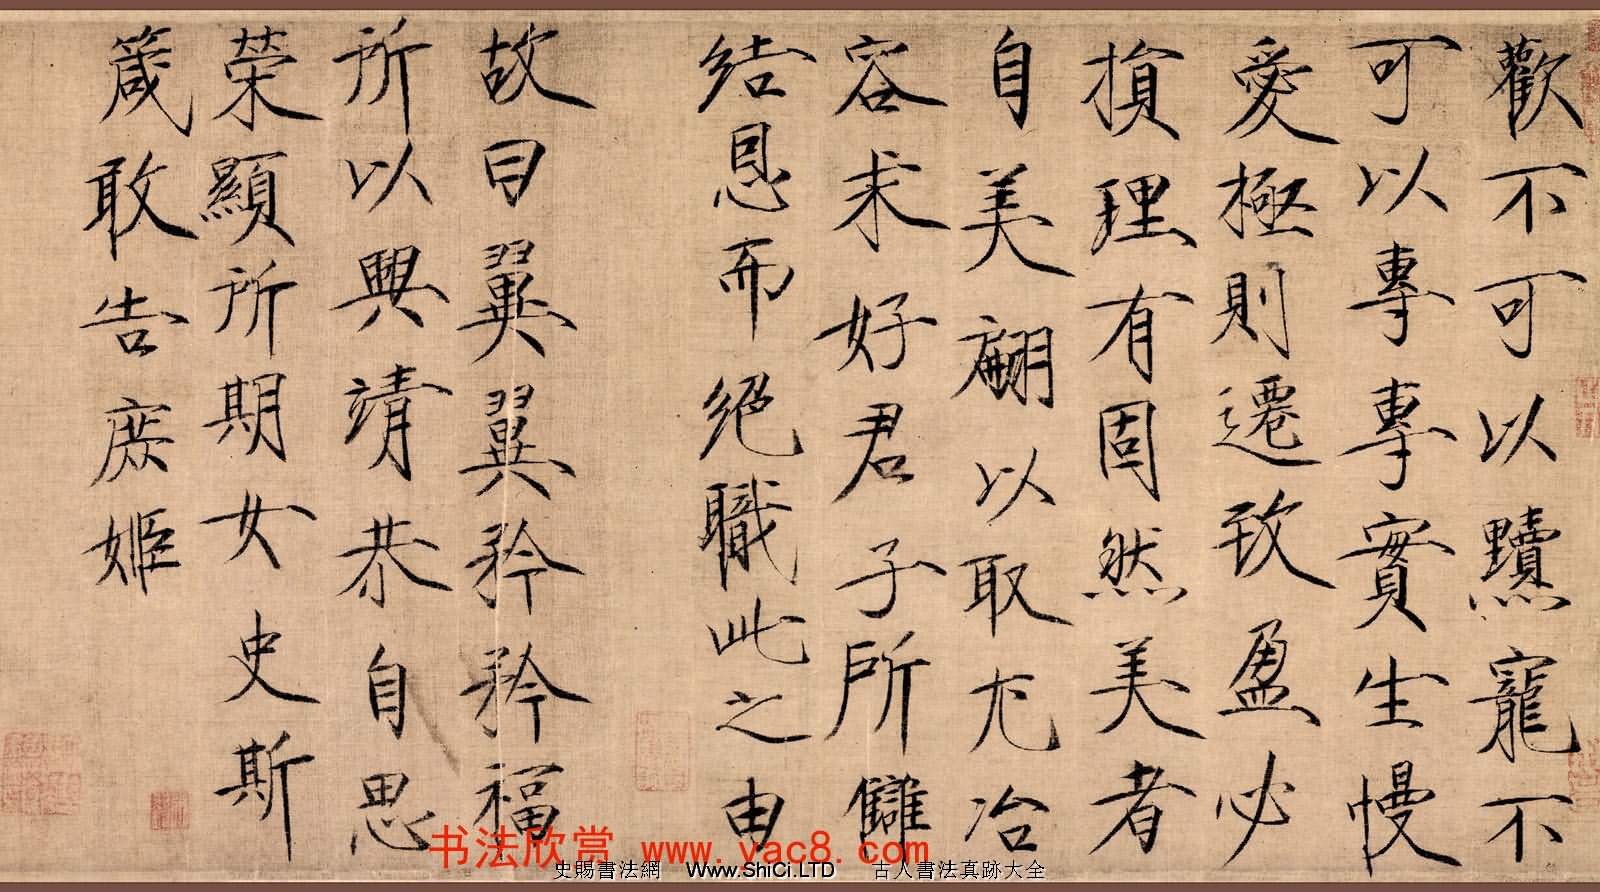 歡不可以黷寵不
可以專專實生慢
愛極則遷致盈必
損理有固然美者
自美翩以取尤冶
容求好君子所讎
結恩而絕職此之由
故曰翼翼矜矜福
所以興靖恭自思
榮顯所期女史斯
箴敢告庶姬
书法欣赏 www.yac8.com
史賜書法網 Www.ShiCi.LTD 古人書法真跡大全